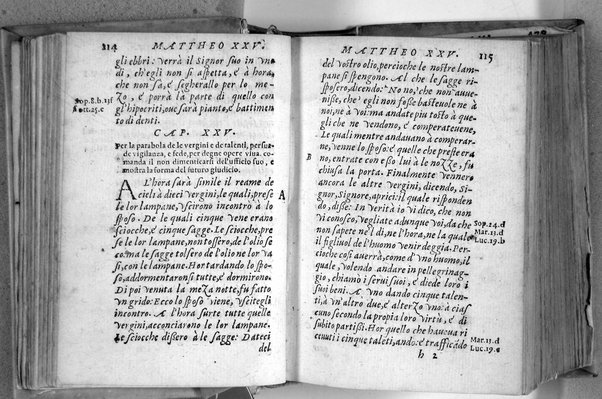 114
MATTHEO XXV.
gli ebbri: verrà il Signor suo in vno
dì, ch'egli non si aspetta, è à hora,
che non sa, è segherallo per lo me-
Sop.8.b.13f
zo, è porrà la parte di quello con
gl'hipocriti, oue sarà pianto, è battimen
to di denti.
CAP. XXV.
Per la parabola de le vergini e de talenti, persua-
de vigilanza, e fede, per degne opere viua.
comanda il non dimenticarsi dell'ufficio suo, e
mostra la forma del futuro giudicio.
A
AL'hora sarà simile il reame de
cieli à dieci vergini, le quali, prese
le lor lampane, vscirono incontro à lo
sposo. De le quali cinque vene erano
sciocche, è cinque sagge. Le sciocche, pre
se le lor lampane, non tossero, de l'olio se
co: ma le sagge tolsero de l'olio ne lor va
si, con le lampane. Hor tardando lo spo-
so, addormentaronsi tutte, è dormirono.
Di poi venuta la meza notte, fu fatto
vn grido: Ecco lo sposo viene, vscitegli
incontro. A l'hora surte tutte quelle
vergini, acconciarono le lor lampane.
Le sciocche dissero à le sagge: Dateci
del
MATTHEO XXV.
115
del vostro olio, percioche le nostre lam-
pane si spengono. Al che le sagge ri-
sposero, dicendo: No no, che non auue-
nisse, che egli non fosse basteuole ne à
noi, ne à voi: ma andate piu tosto à que-
gli che ne vendono, è comperateuene.
Le quali mentre andauano à comperar-
ne, venne lo sposo: è quelle che preste era
B
no, entrate con esso lui à le nozze, fu
chiusa la porta. Finalmente vennero
ancora le altre vergini, dicendo, Si-
gnor, Signore, aprici: il quale risponden
do, disse: In verità io vi dico, che non
vi conosco, vegliate adunque voi, da che
Sop.24.d
non sapete nel dì, ne l'hora, ne la quale
Mar.13.d
il figliuol de l'huomo venir deggia. Per-
Luc.19.b
cioche così auerrà, come d'vno huomo, il
quale, volendo andare in pellegrinag-
gio, chiamò i serui suoi, è diede loro i
suoi beni. A vno dando cinque talen-
ti, à vn'altro due, è alterzo vno: à cias
cuno secondo la propia loro virtù, è di
subito partissi. Hor quello che haueua ri
Mar.13.d
ceuuti i cinque taleti, andò: è trafficãdo
Luc.19.c
h 2